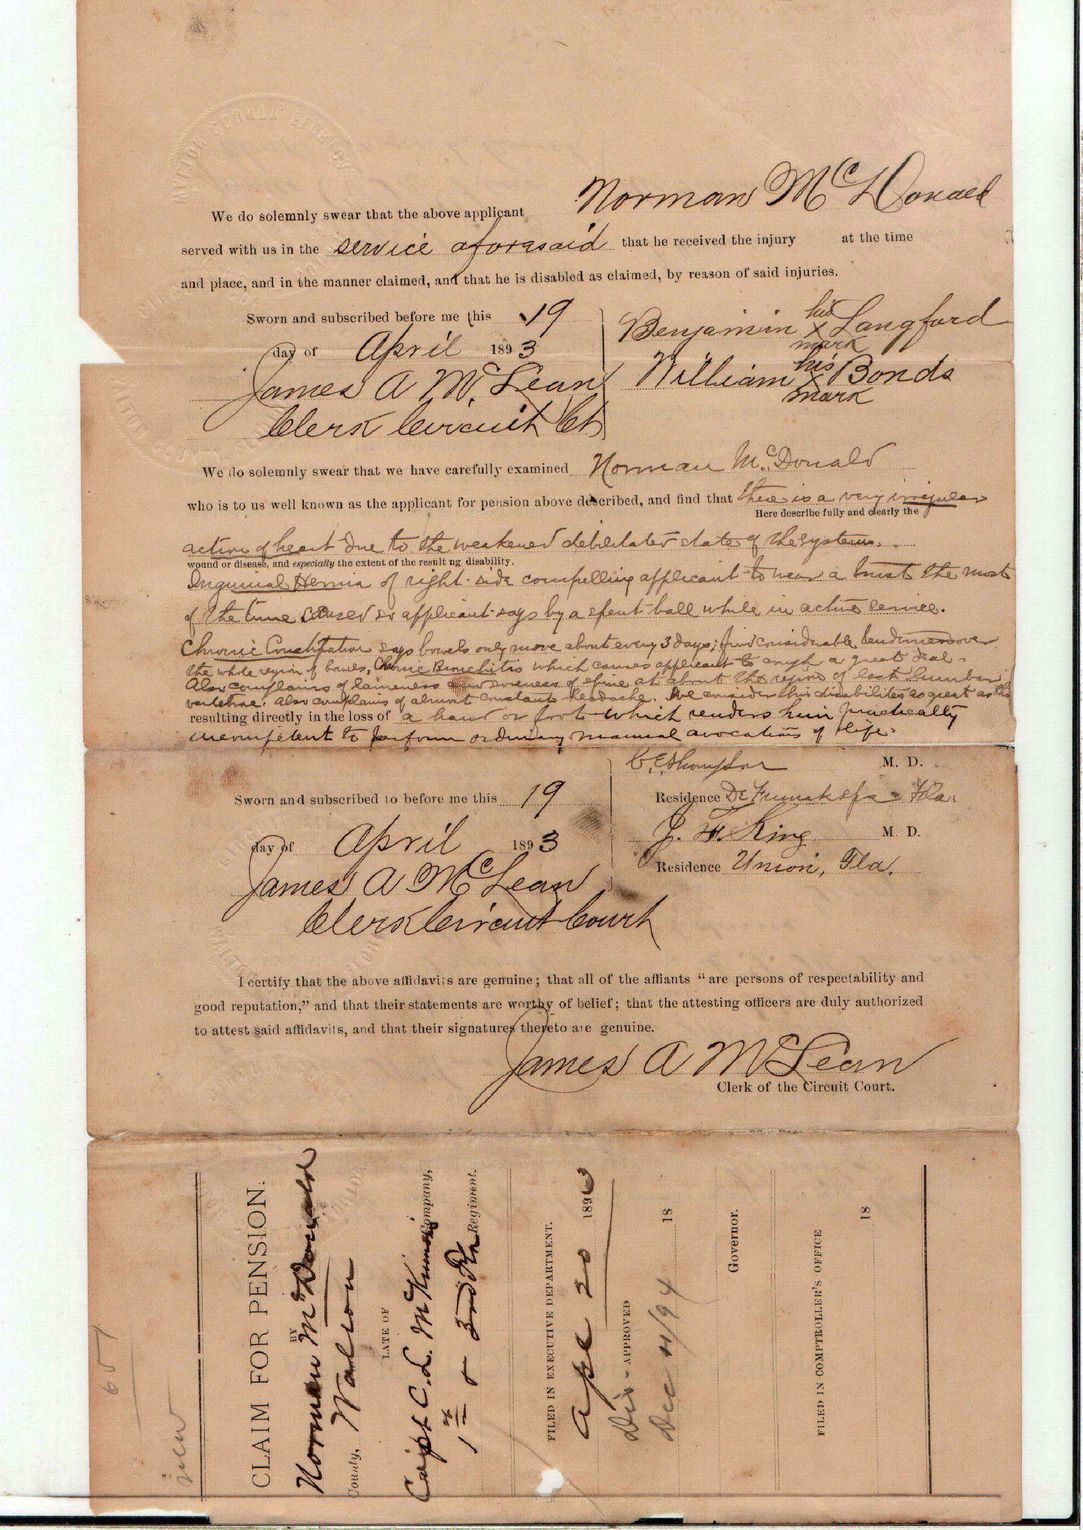 We do solemnly swear that the above applicant Norman McDonald
served with us in the service aforesaid that he received the injury at the time
and place, and in the manner claimed, and that he is disabled as claimed, by reason of said injuries.
Sworn and subscribed before me this 19
day of April 1893
James A McLean
Clerk Circuit Ct
Benjamin his X mark Langford
William his X mark Bonds
We do solemnly swear that we have carefully examined Norman McDonald
who is to us well known as the applicant for pension above described, and find that there is a very irregular
Here describe fully and clearly the
action of heart due to the weakened debilitated state of the system.
wound or disease, and especially the extent of the resulting disability.
Inguinal Hernia of right side compelling applicant to wear a truss the most
of the time caused so applicant says by a spent ball while in active service.
Chronic Constipation says bowels only move about every 3 days; find considerable tenderness over
the whole region of bowels, Chronic Bronchitis which causes applicant to cough a great deal.
Also complains of lameness and soreness of spine at about the region of last lumbar
vertebrae. Also complains of almost constant headache. We consider his disabilities as great as
resulting directly in the loss of a hand or foot which renders him practically
incompetent to perform ordinary manual avocations of life.
Sworn and subscribed to before me this 19
day of April 1893
James A McLean
Clerk Circuit Court
Thompson M. D.
Residence De Funiak Fla.
J. F. King M. D.
Residence Union, Fla.
I certify that the above affidavits are genuine; that all of the affiants "are persons of respectability and
good reputation," and that their statements are worthy of belief; that the attesting officers are duly authorized
to attest said affidavits, and that their signatures thereto are genuine.
James A McLean
Clerk of the Circuit Court.
new 651
CLAIM FOR PENSION.
BY
Norman McDonald
County, Walton
LATE OF
Capt C. L. McKinnon Company,
1st Regiment.
FILED IN EXECUTIVE DEPARTMENT.
Apl 20 1893
Dis-APPROVED
Dec 11/94 18
Governor.
FILED IN COMPTROLLER'S OFFICE
18